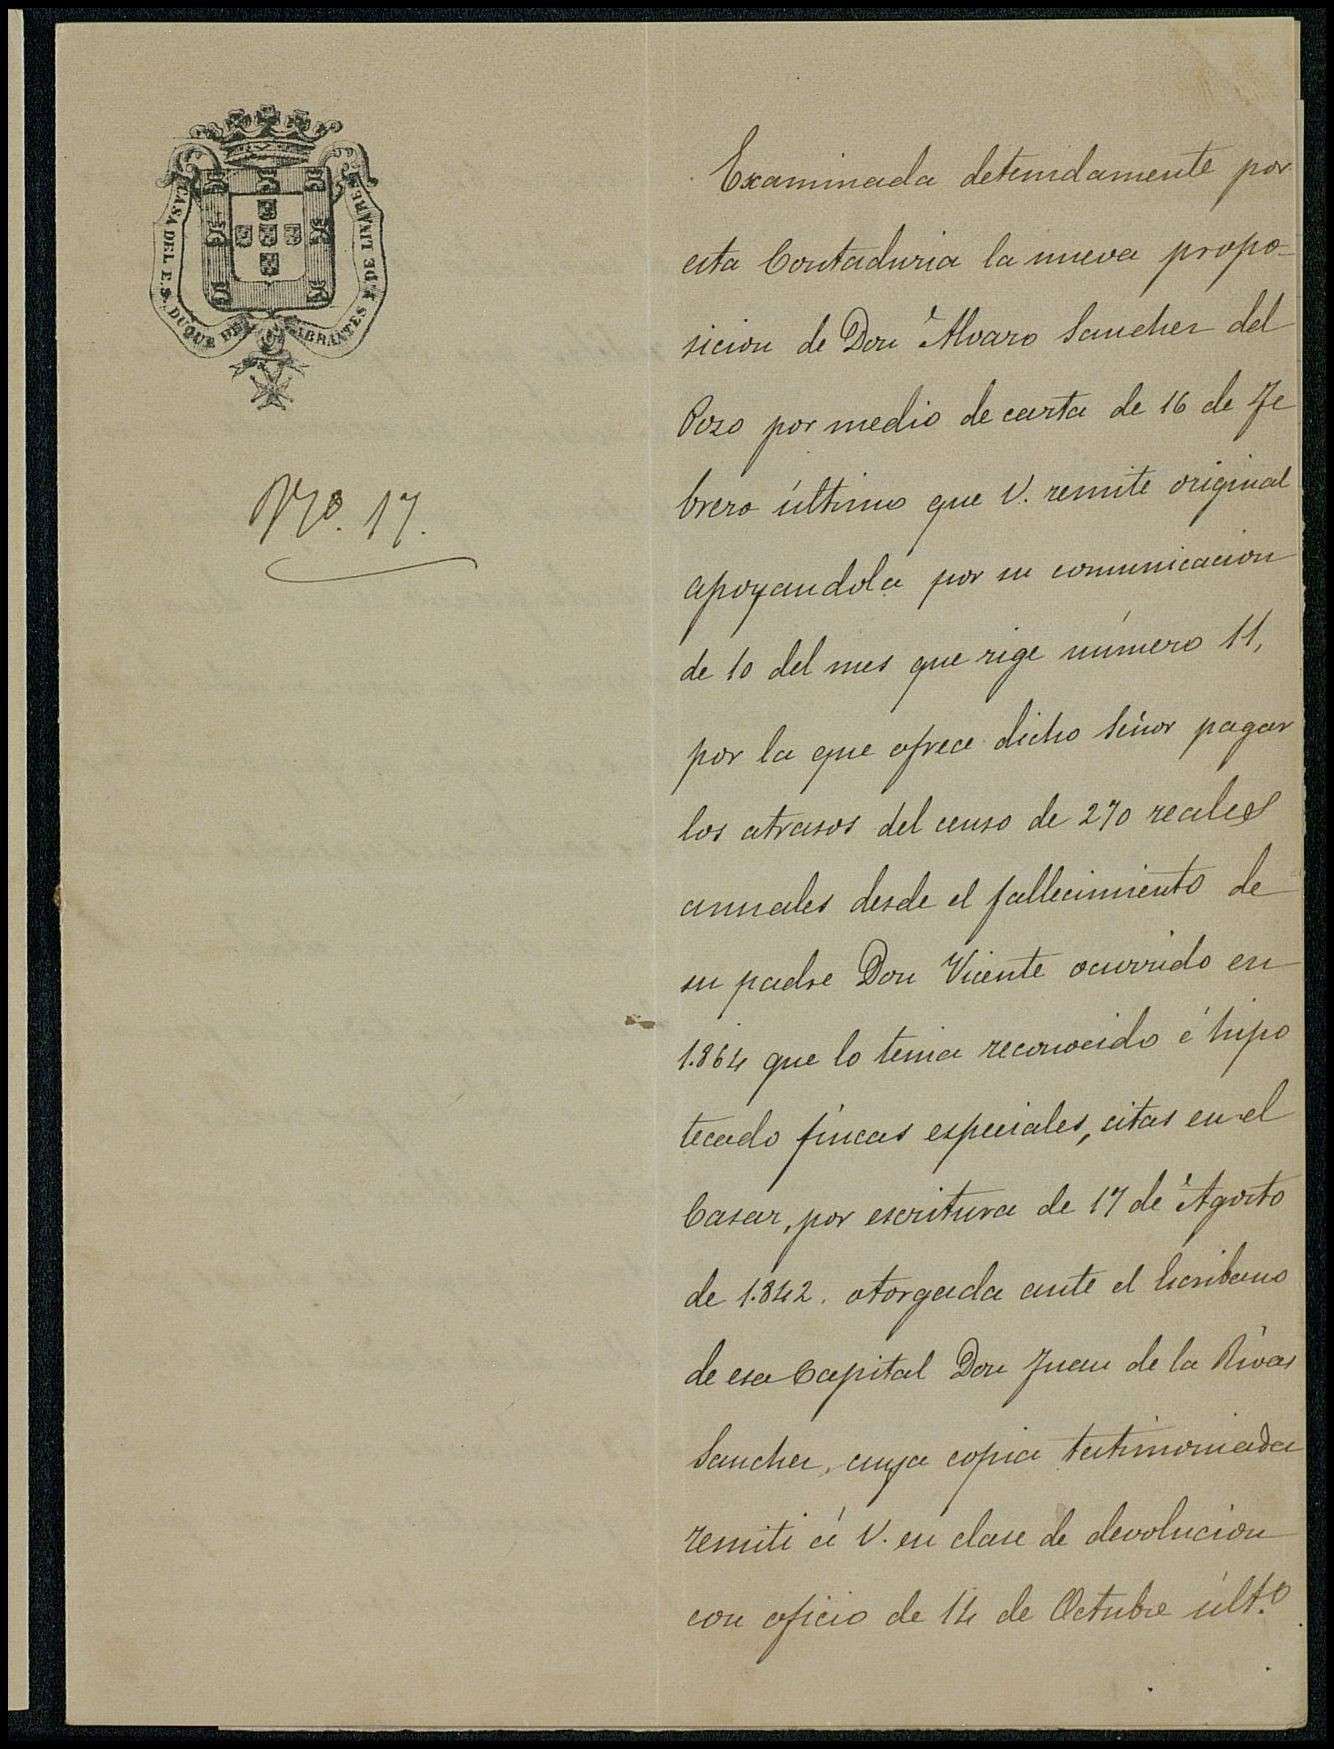 CASA DEL E.S. DUQUE DE ABRANTES Y DE LINARES
Nº. 17.
Examinada detenidamente por
esta Contaduria la nueva propo-
sicion de Don Alvaro Sanchez del
Pozo por medio de carta de 16 de Fe
brero último que V. remite original
apoyandola por su comunicacion
de 10 del mes que rige número 11,
por la que ofrece dicho Señor pagar
los atrasos del censo de 270 reales
anuales desde el fallecimiento de
su padre Don Vicente ocurrido en
1.864 que lo tenia reconocido é hipo
tecado fincas especiales, citas en el
Casar, por escritura de 17 de Agosto
de 1.842. otorgada ante el Escribano
de esa Capital Don Juan de la Rivas
Sanchez, cuya copia testimoniada
remití á V. en clase de devolucion
con oficio de 14 de Octubre últ.º